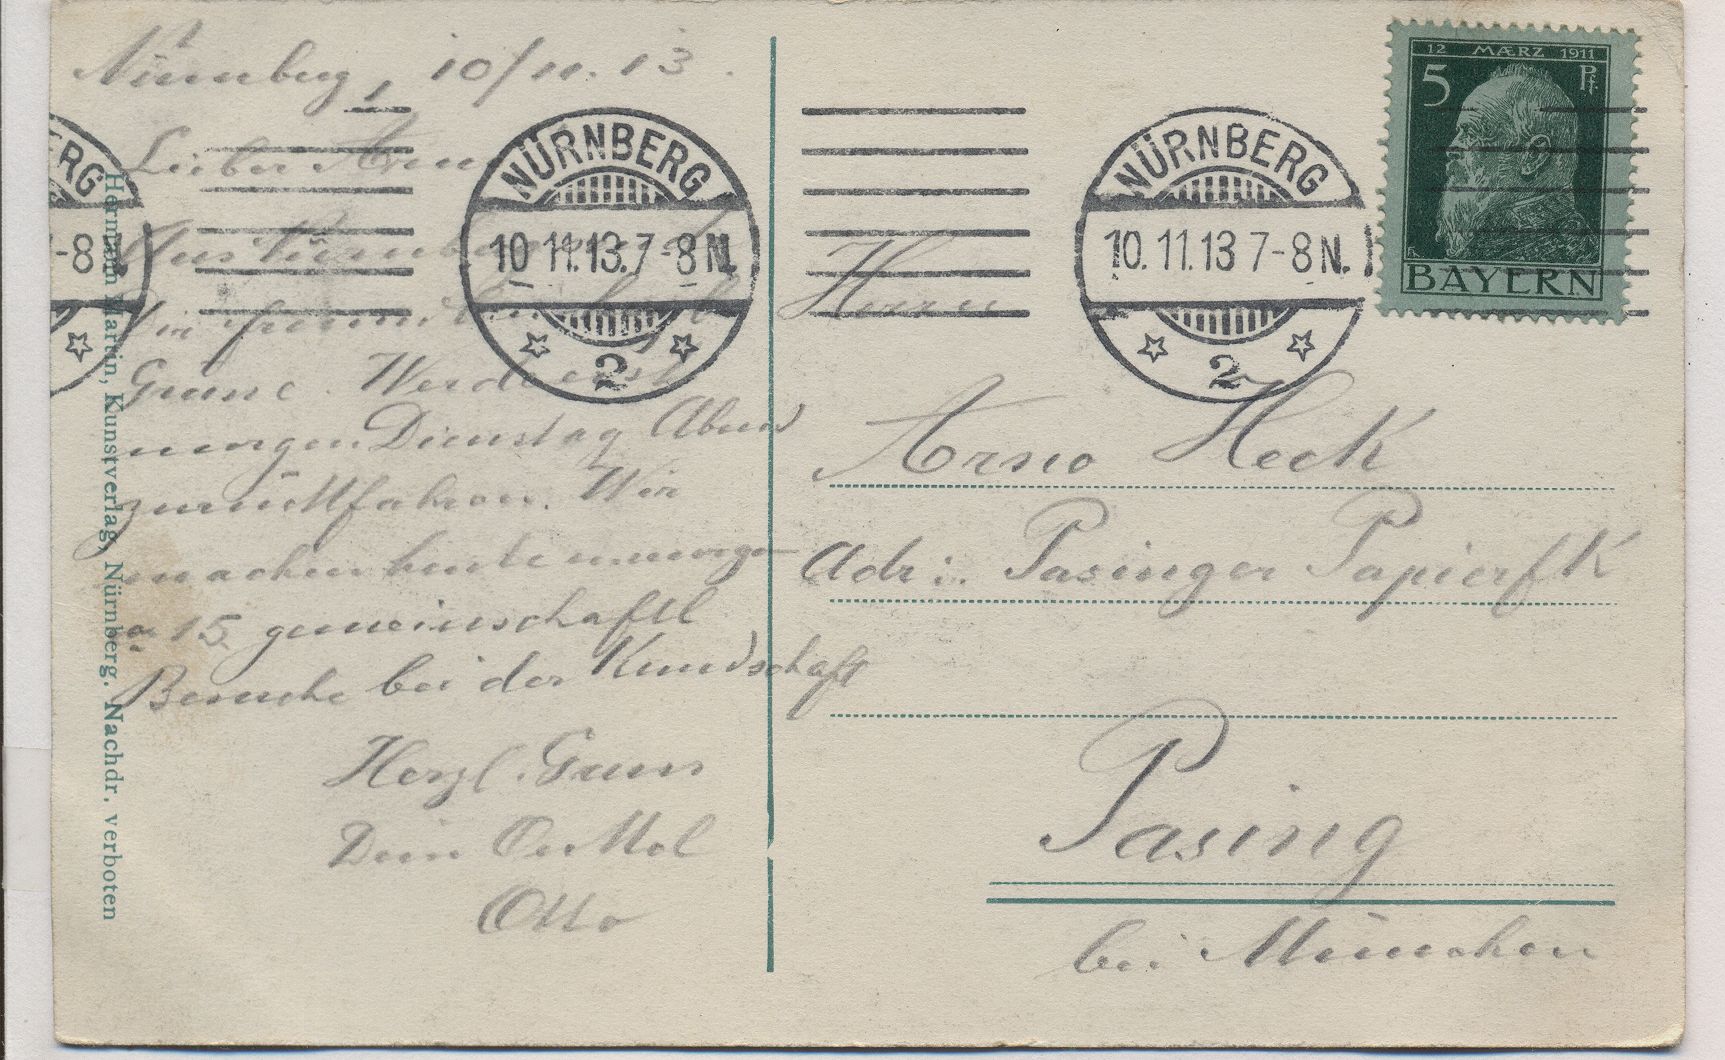 Nürnberg, 10/11.13.
Lieber Arno
Aus Nürnberg send
Dir freundliche herzl
Grüsse. Werde erst
morgen Dienstag Abend
zurückfahren. Wir
machen heute u. morgen
ca 15 gemeinschaftl
Besuche bei der Kundschaft
Herzl. Gruss
Dein
Otto
Hermann Martin, Kunstverlag, Nürnberg. Nachdr. verboten
ERG
-8
NÜRNBERG
10 11.13.7-8 N.
2
NÜRNBERG
10.11.13 7-8 N.
2
12 MÆRZ 1911
5 Pf.
BAYERN
Herrn
Arno Heck
Adr: Pasinger Papierfk
Pasing
bei München